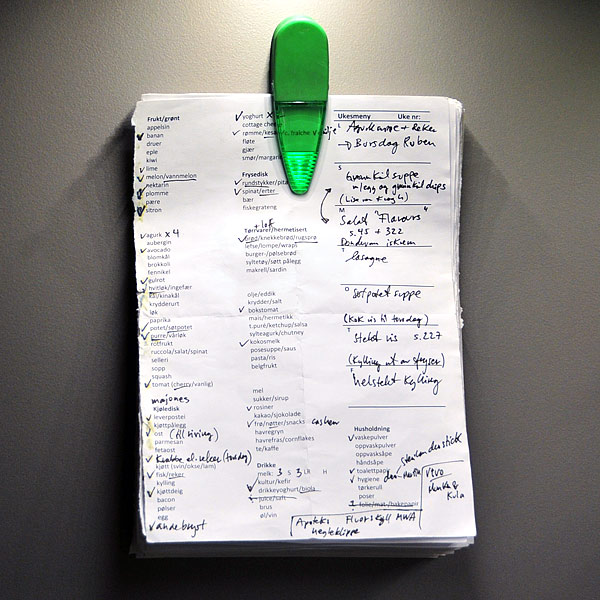 Frukt/grønt
appelsin
banan
druer
eple
kiwi
lime
melon/vannmelon
nektarin
plomme
pære
sitron
agurk x 4
aubergin
avocado
blomkål
brokkoli
fennikel
gulrot
hvitløk/ingefær
kål/kinakål
krydderurt
løk
paprika
potet/søtpotet
purre/vårløk
rotfrukt
ruccola/salat/spinat
selleri
sopp
squash
tomat (cherry/vanlig)
majones
Kjøledisk
leverpostei
kjøttpålegg
ost (til riving)
parmesan
fetaost
kjøtt (svin/okse/lam)
fisk/reker
kylling
kjøttdeig
bacon
pølser
egg
andebryst
yoghurt x
cottage cheese
rømme/kesam/c. fraiche
fløte
gjær
smør/margarin
Frysedisk
rundstykker/pita
spinat/erter
bær
fiskegrateng
+ loff
Tørrvarer/hermetisert
brød/knekkebrød/rugsprø
lefse/lompe/wraps
burger-/pølsebrød
syltetøy/søtt pålegg
makrell/sardin
olje/eddik
krydder/salt
bokstomat
mais/hermetikk
t.puré/ketchup/salsa
sylteagurk/chutney
kokosmelk
posesuppe/saus
pasta/ris
belgfrukt
mel
sukker/sirup
rosiner
kakao/sjokolade
frø/nøtter/snacks cashew
havregryn
havrefras/cornflakes
te/kaffe
Drikke
melk: 3 S 3 LR H
kultur/kefir
drikkeyoghurt/biola
juice/saft
brus
øl/vin
Ukesmeny Uke nr:
+ Reker
→ Bursdag Ruben
S
Grønnkålsuppe
m/egg og grønnkålchips
M
Salat "Flavors"
s.45 + 322
T
lasagne
O
Søtpotetsuppe
(Kok ris til torsdag)
T
Stekt ris s.227
(Kylling ut av fryser)
F
helstekt kylling
Husholdning
vaskepulver
oppvaskpulver
oppvaksåpe
håndsåpe
toalettpapir
hygiene
tørkerull
poser
folie/mat-/bakepapir
Apotek: Fluorskyll MWA
negleklippe